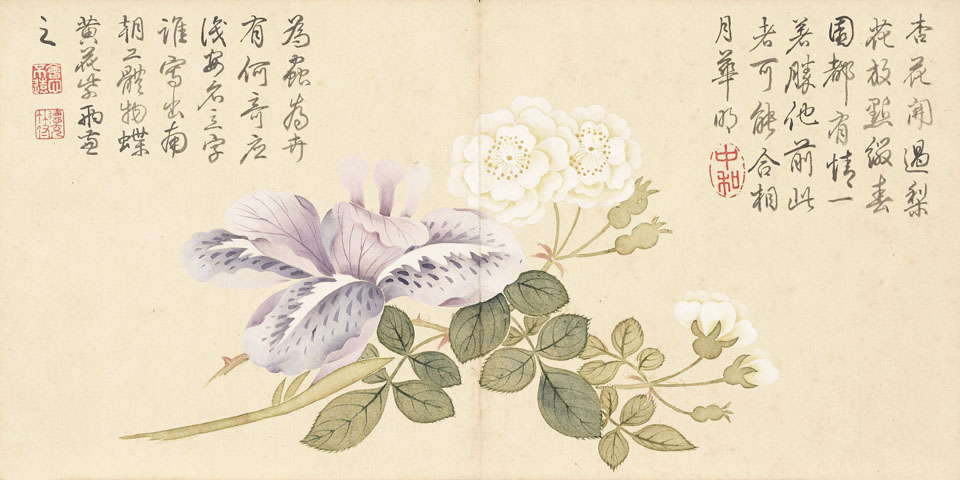 杏花開過梨
花放點綴春
園都有情一
著勝他前此
者可能合相
月華明
中和
為蟲為卉
有何奇
安名立字
誰寫出南
朝工體物蝶
黃花紫兩
之